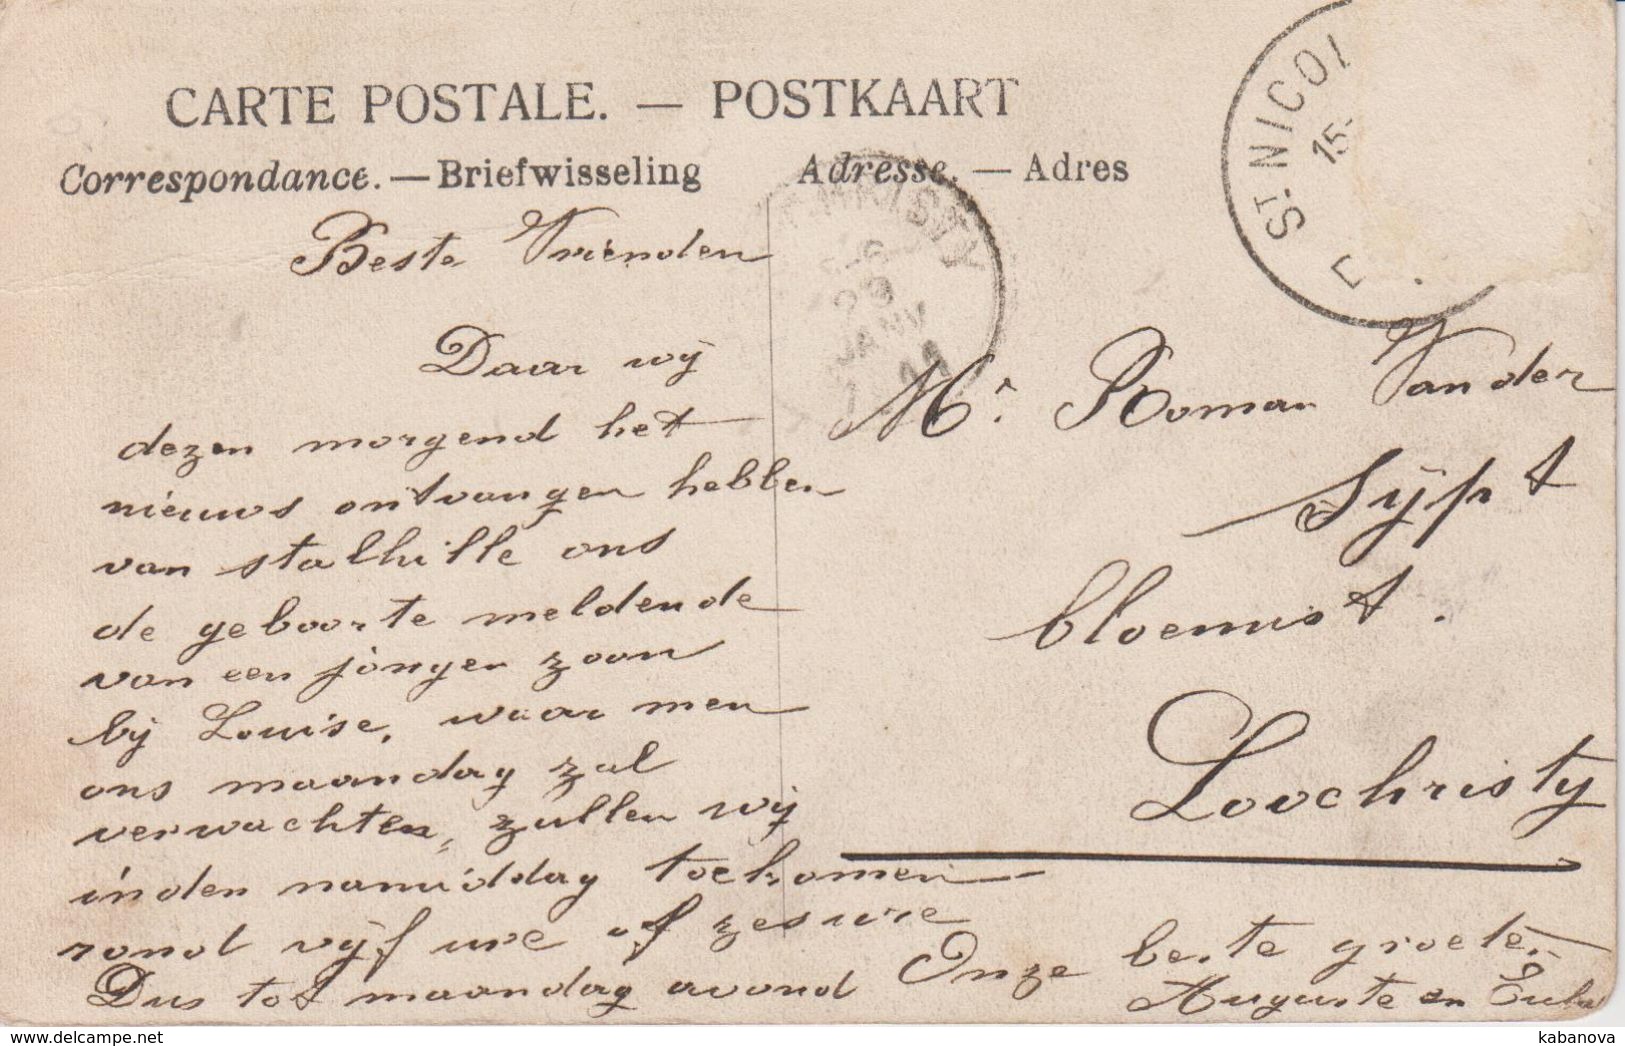 CARTE POSTALE. — POSTKAART
Correspondance. — Briefwisseling
Adresse. — Adres
Beste Vrienden
Daar wij
dezen morgend het
nieuws ontvangen hebben
van stalhille ons
de geboorte meldende
van een jongen zoon
bij Louise, waar men
ons maandag zal
verwachten, zullen wij
in den namiddag toekomen
rond vijf ure of zes ure
Dus tot maandag avond
Onze beste groete.
Auguste en
Mr. Roman Van der
Sijpt
bloemist.
Loochristy
ST. NICO
15
CHRISTY
JANV
delcampe.net
kabanova